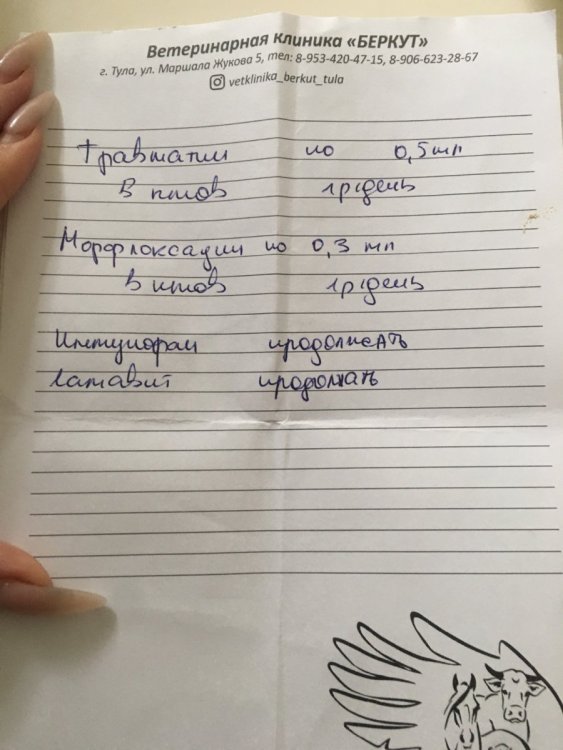 Ветеринарная клиника «БЕРКУТ»
г. Тула, ул. Маршала Жукова 5, тел: 8-953-420-47-15, 8-906-623-28-67
vetklinika_berkut_tula
Травматин по 0,5 мл
1р/день
Морфлоксацин по 0,3 мл
1р/день
Имунофан продолжать
Гамавит продолжать